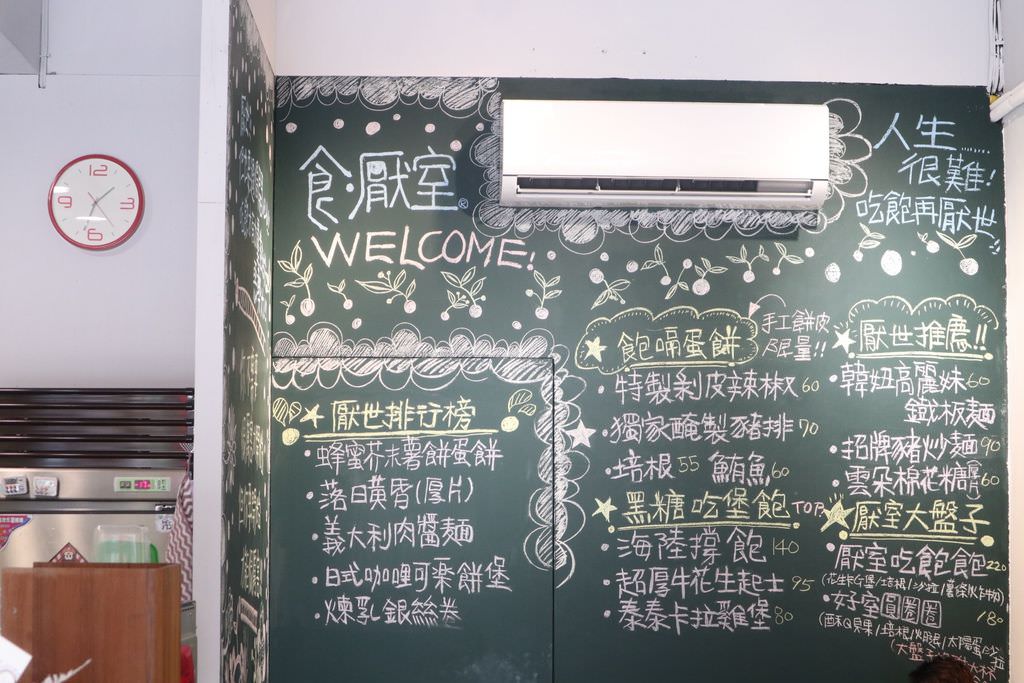 食·厭室®
WELCOME!
人生……
很難!
吃飽再厭世!!
12
3
6
9
厭世排行榜
·蜂蜜芥末薯餅蛋餅
·落日黃昏(厚片)
·義大利肉醬麵
·日式咖哩可樂餅堡
·煉乳銀絲卷
飽嗝蛋餅
手工餅皮
限量!!
·特製剝皮辣椒60
·獨家醃製豬排70
·培根55 鮪魚60
黑糖吃堡飽TOP
·海陸撐飽140
·超厚牛花生起士95
·泰泰卡拉雞堡80
厭世推薦!!
·韓妞高麗妹60
鐵板麵
·招牌豬炒麵90
·雲朵棉花糖厚片60
厭室大盤子
·厭室吃飽飽220
·好室圓圈圈180